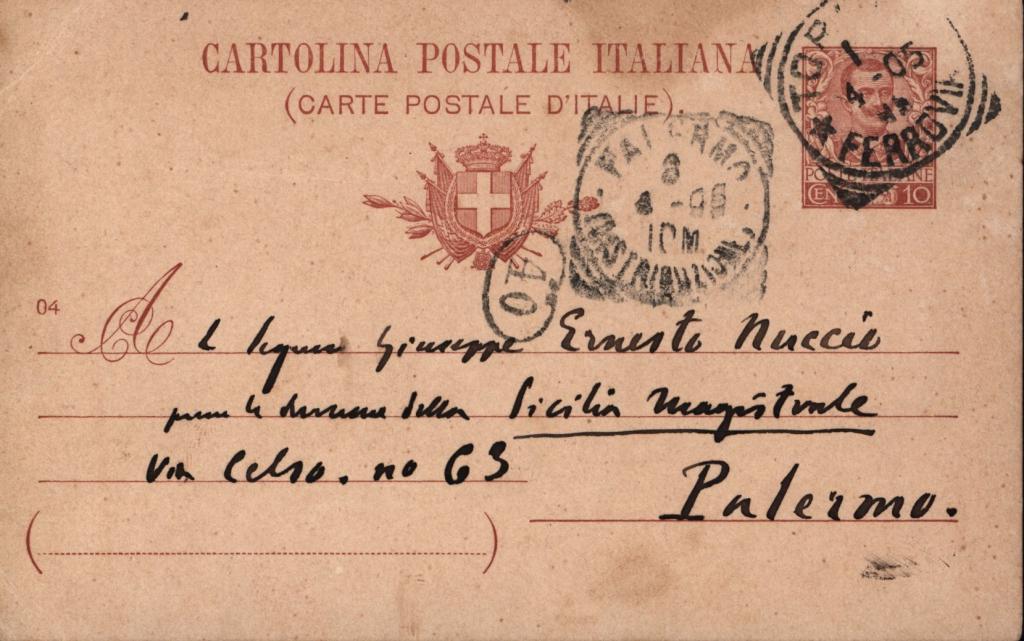 CARTOLINA POSTALE ITALIANA
(CARTE POSTALE D'ITALIE).
TOR
1
4-05
* FERROVIA
POSTE ITALIANE
CENTESIMI 10
PALERMO
8
4-05
10M
DISTRIBUZIONE
40
04
Al Signor Giuseppe Ernesto Nuccio
presso la direzione della Sicilia Magistrale
Via Celso. no 63
Palermo.